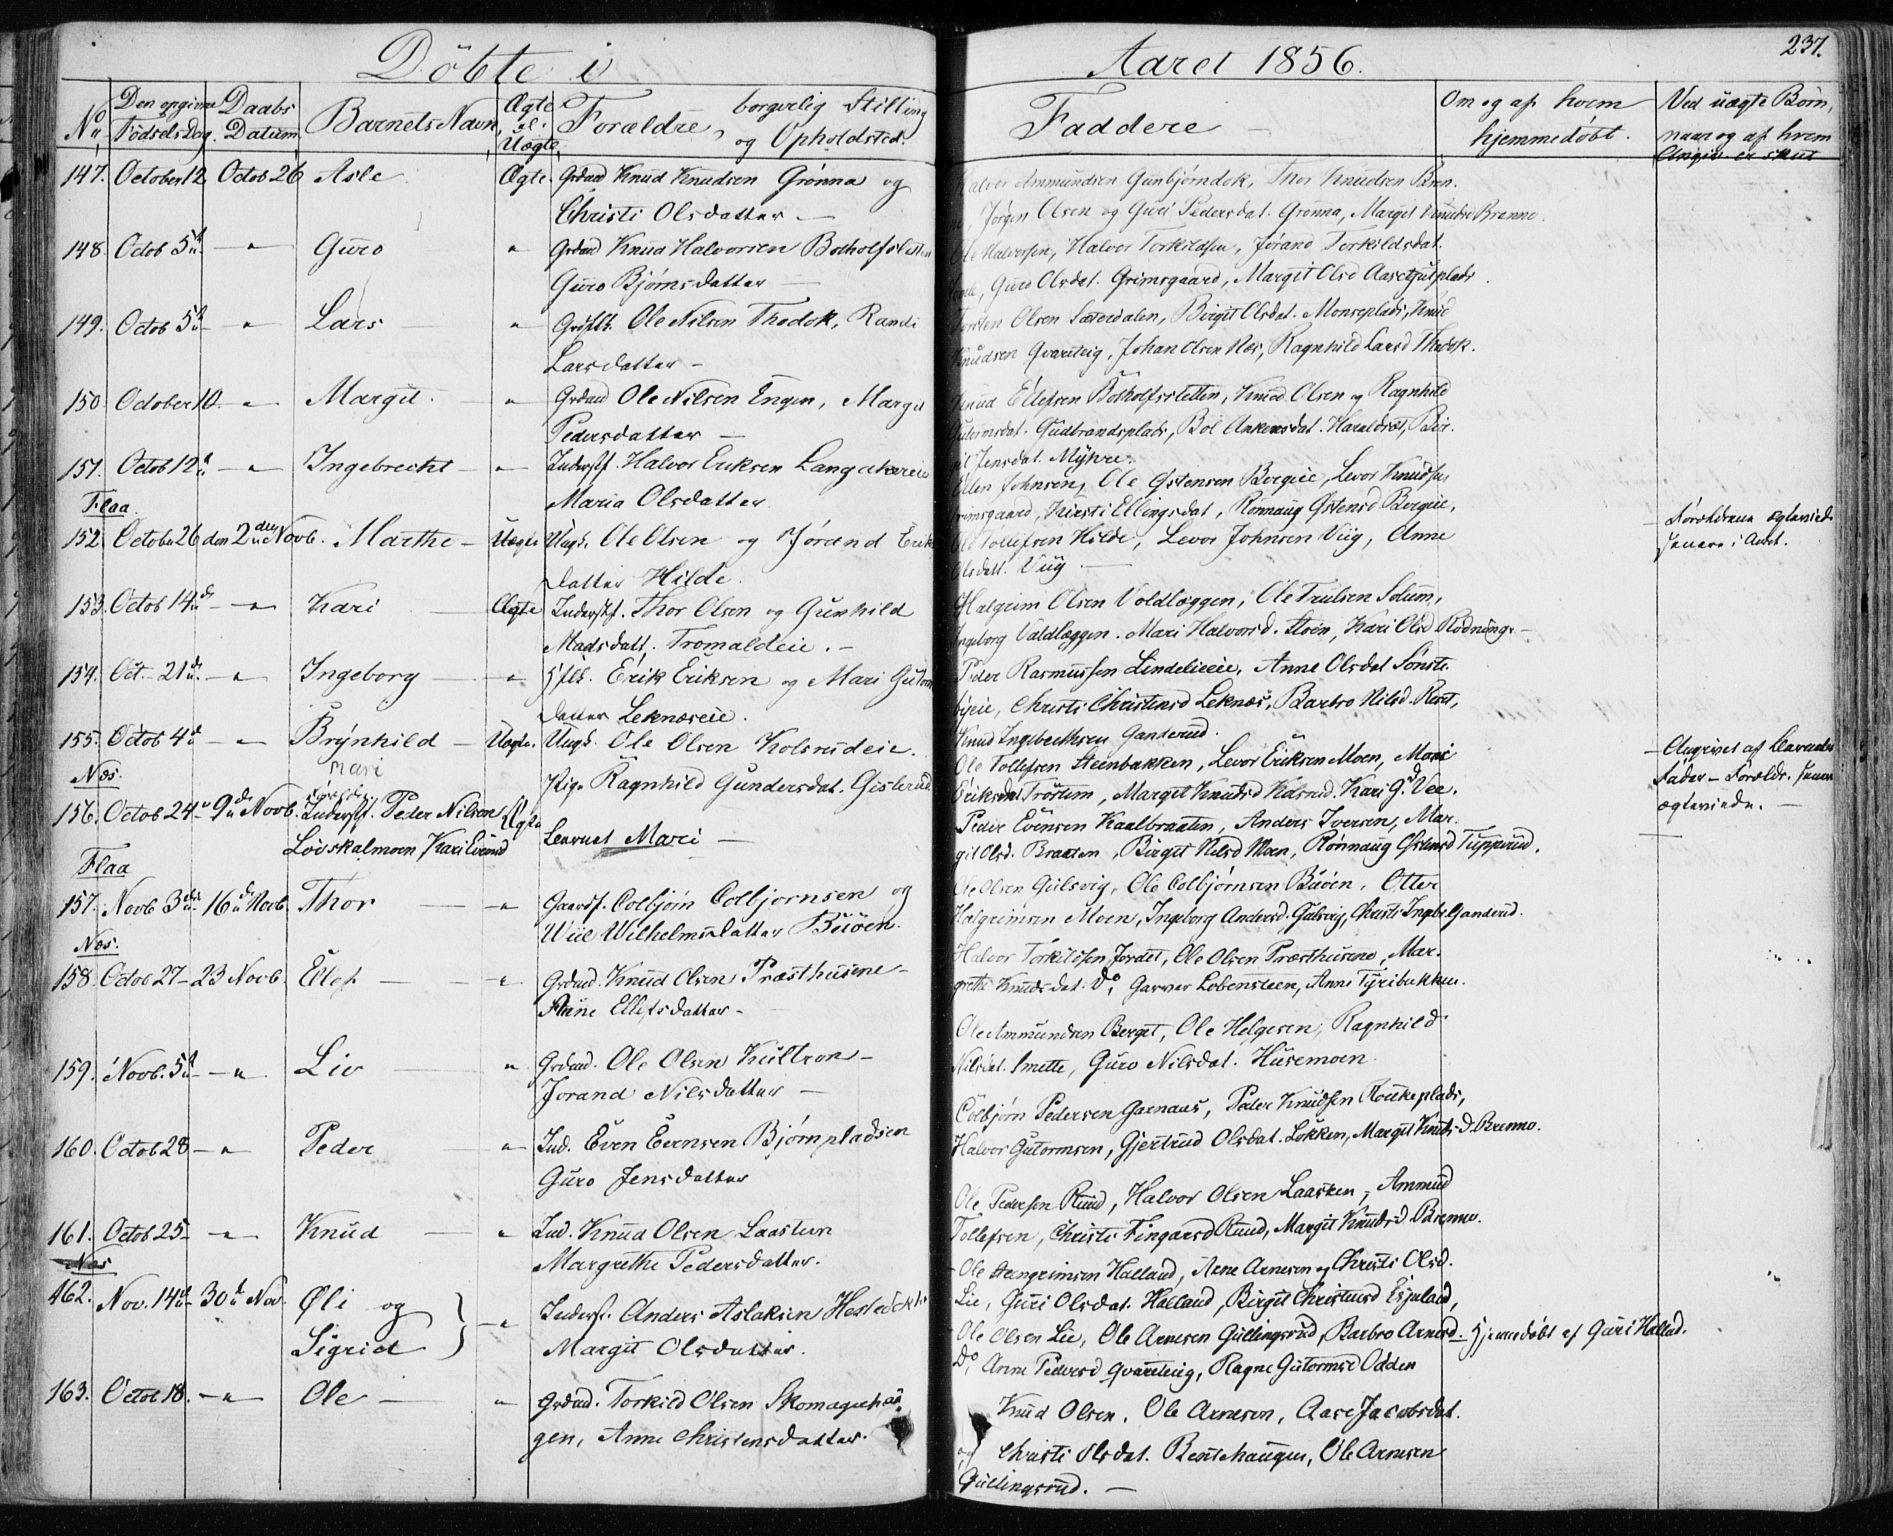 Döbte i Aaret 1856.
237.
No
Den opgivne Fødsels Dag.
Daabs Datum
Barnets Navn
Ægte el. Uægte
Forældre, borgerlig Stilling og Opholdsted.
Faddere
Om og af hvem hjemmedøbt.
Ved uægte Børn, naar og af hvem Angiv. er skeet
147. October 12 Octob 26 Asle Ægte. Grdmd Knud Knudsen Grønna og
Christi Olsdatter —
Halvor Ammundsen Gunbjørndok, Thor Knudsen Bren.
Jørgen Olsen og Guri Pedersdat. Grønna, Margit Knudsd Brenno.
148. Octob 5te — " Guro " Grdmd Knud Halvorsen Botholfsletten
Guro Bjørnsdatter —
Ole Halvorsen, Halvor Torkildsen, Jørand Torkildsdat.
Guro Olsdat. Grimsgaard, Margit Olsd Aasetgutplads.
149. Octob 5te — " Lars " Ole Nilsen Thodok, Randi
Larsdatter —
Torsten Olsen Sæterdalen, Birgit Olsdat. Monseplads, Knud
Knudsen Qvarteig, Johan Olsen Næs, Ragnhild Larsd Thodok.
150. October 10. — " Margit — " Grdmd Ole Nilsen Engen, Margit
Pedersdatter —
Knud Ellefsen Botholfssletten, Knud Olsen og Ragnhild
Gutormsdat. Gudbrandsplads, Bol Ankersdat. Haraldset, Bir-
git Jensdat. Myhre.
151. Octob 12te — " Ingebrecht — " Inderst. Halvor Eriksen Langeherere
Maria Olsdatter
Ellen Johnsen, Ole Østensen Bergeie, Levor Knudsen
Grimsgaard, Kirsti Ellingsdat, Rønnaug Østensd Bergeie,
Flaa
152. October 26 den 2den Novb. Marthe — Uægte Ungk. Ole Olsen og Jørand Eriks
datter Hilde.
Ole Tollefsen Hilde, Levor Johnsen Viig, Anne
Olsdatt. Viig —
Forældrene ægteviede
senere i Aaret.
153. Octob 14de — " Kari — Ægte Inderst. Thor Olsen og Gunhild
Madsdatt. Tromaldeie. —
Halgrim Olsen Voldlæggen, Ole Trulsen Solum,
Ingeborg Valdlæggen. Mari Halvorsd. Støen, Kari Olsd Rodnings —
154. Oct. 21de — " Ingeborg — " Erik Eriksen og Mari Gutorms
datter Leknæseie.
Peder Rasmussen Lindelieeie, Anne Olsdat Sønste
byeie, Christi Christensd Leknæs, Barbro Nilsd. Rost,
Knud Ingebrethsen Ganderud.
155. Octob 4de — " Brynhild — Uægte. Ungk. Ole Olsen Kolsrudeie.
Pige Ragnhild Gundersdat. Gislerud
Ole Tollefsen Steinbakken, Levor Eriksen Moen, Mari
Eriksdat Trøstem, Margit Knudsd Kolsrud. Kari G.d Vee.
Angivet af Barnets
Fader — Forældr. senere
ægteviede. —
Næs.
Mari
Forældre
156. Octob 24 — 9de Novb. Inderst. Peder Nilsen Ægte
Løvskalmoen Kari Evensd
Barnet Mari —
Peder Evensen Kaalbraaten, Anders Iversen, Mar-
git Olsd. Braaten, Birgit Nilsd Moen, Rønnaug Østensd Tupperud.
Flaa
157. Novb 3die 16de Novb. Thor — " Gaardf. Colbjørn Colbjørnsen og
Wiie Wilhelmsdatter Buøen.
Ole Olsen Gulsvig, Ole Colbjørnsen Buøen, Otter
Halgrimsen Moen, Ingeborg Andersd. Gulsvig, Christi Ingebr. Ganderud.
Næs.
158. Octob 27 — 23 Novb. Ellef — " Grdmd. Knud Olsen Præsthusene —
Anne Ellefsdatter —
Halvor Torkildsen Jordet, Ole Olsen Præsthusene, Mar-
grethe Knudsdat. Do, Garver Lobensteen, Anne Tyribakken.
159. Novb. 5te — " Liv " Grdmd. Ole Olsen Kultron —
Jorand Nilsdatter —
Ole Ammundsen Berget, Ole Helgesen, Ragnhild
Nilsdat. Smette, Guro Nilsdat. Husemoen.
160. Octob 28 — " Peder " Ind. Even Evensen Bjørnpladsen
Guro Jensdatter
Colbjørn Pedersen Garnaas, Peder Knudsen Roukeplads,
Halvor Gutormsen, Gjertrud Olsdat. Løkken, Margit Knuds.D. Brenno.
161. Octob 25 — " Knud — " Ind. Knud Olsen Laasken
Margrethe Pedersdatter.
Ole Pedersen Ruud, Halvor Olsen Laasken, Ammud
Tollefsen, Christi Fingarsd Ruud, Margit Knuds.D. Brenno.
Næs
162. Nov. 14de 30te Nov. Øli og Sigrid — " Inderst. Anders Aslaksen
Margit Olsdatter.
Ole Steingrimsen Halland, Arne Arnesen og Christi Olsd.
Lie, Guri Olsdat. Halland, Birgit Christensd Espeland,
Ole Olsen Lie, Ole Arnesen Gullingsrud, Barbro Arnesd
Do, Anne Pedersd Qvarteig, Ragne Gutormsd Odden
Hjemmedøbt af Guri Halland.
163. Octob 18. — " Ole — " Grdmd. Torkild Olsen Skomagerhau-
gen, Anne Christensdatter.
Knud Olsen, Ole Arnesen, Aase Jacobsdat.
og Christi Olsdat. Bentehaugen, Ole Arnesen
Gullingsrud. —